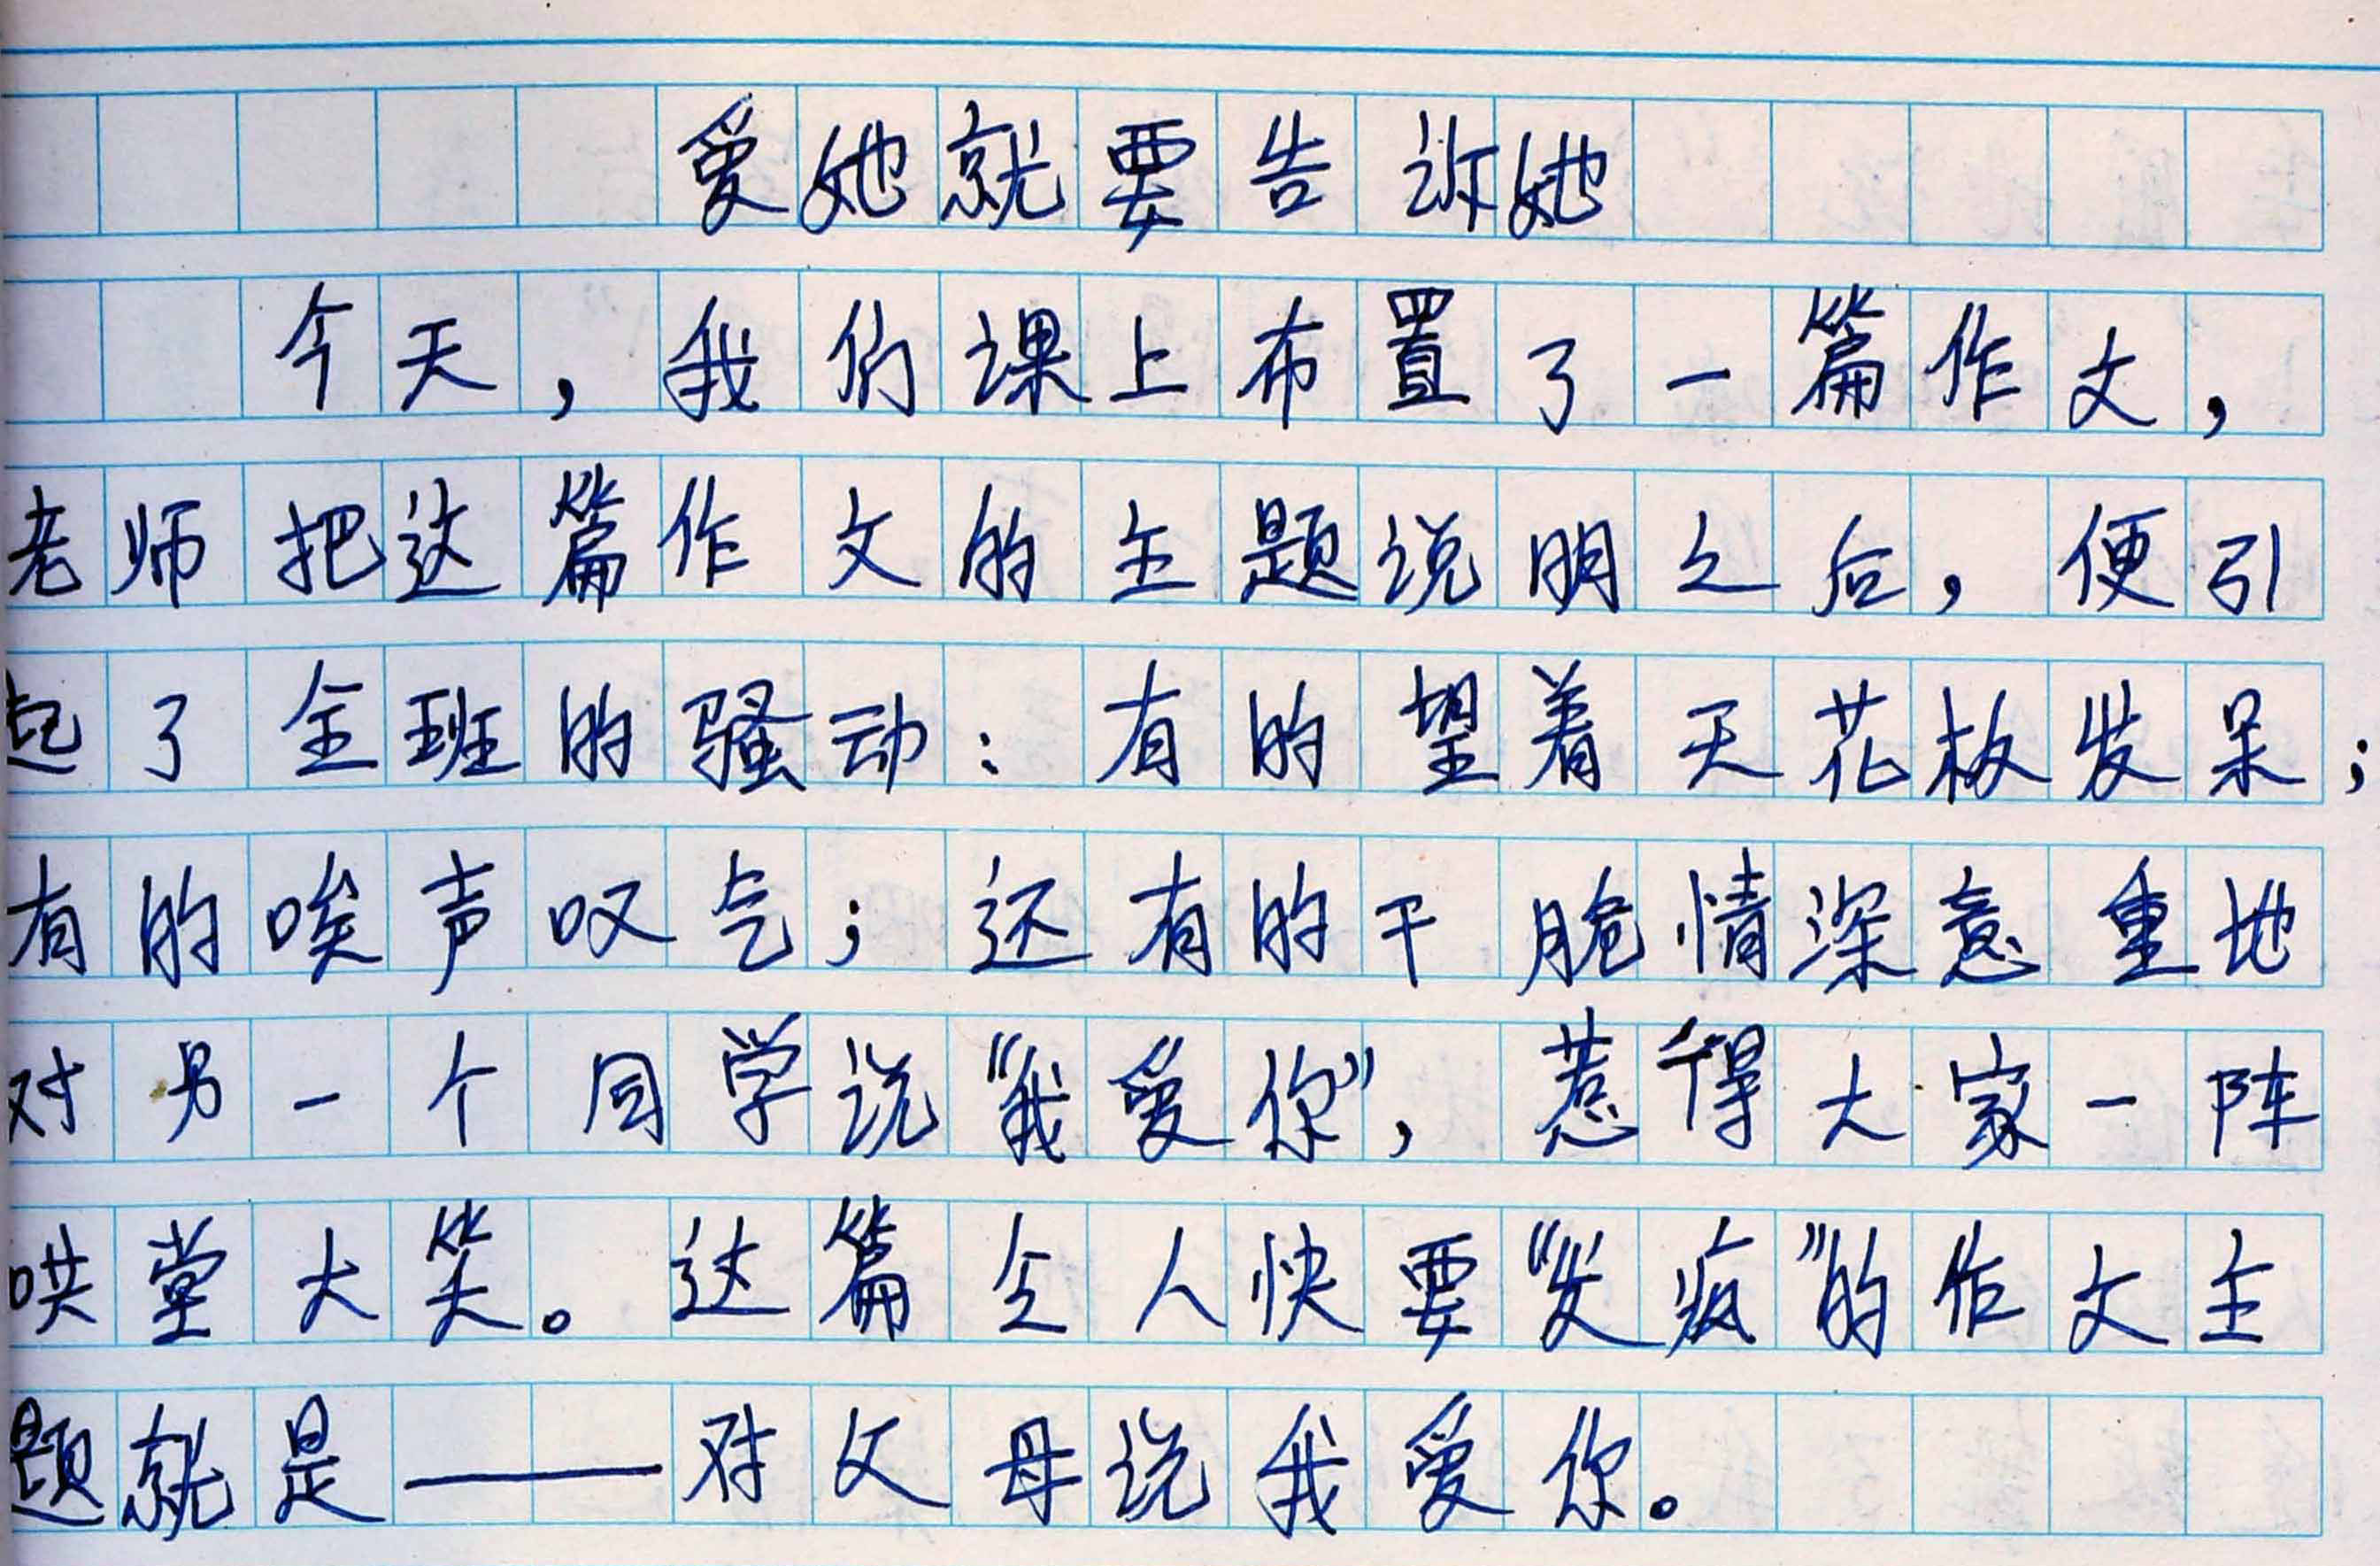 爱她就要告诉她
今天，我们课上布置了一篇作文，
老师把这篇作文的主题说明之后，便引
起了全班的骚动：有的望着天花板发呆；
有的唉声叹气；还有的干脆情深意重地
对另一个同学说“我爱你”，惹得大家一阵
哄堂大笑。这篇令人快要“发疯”的作文主
题就是——对父母说我爱你。